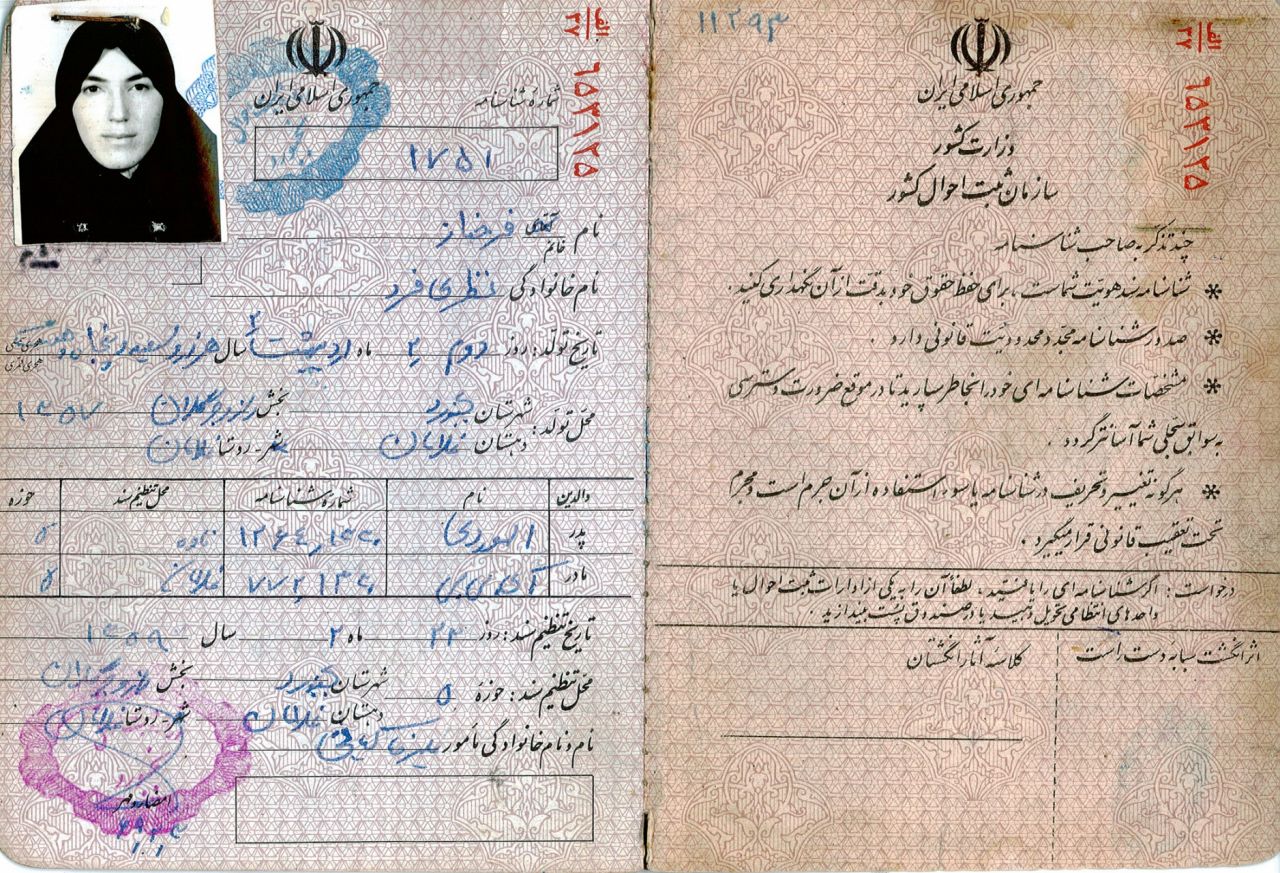 ۱۱۲۹۳
الف
۳۷
۶۵۳۱۲۵
جمهوری اسلامی ایران
وزارت کشور
سازمان ثبت احوال کشور
چند تذکر به صاحب شناسنامه
* شناسنامه سند هویت شماست ، برای حفظ حقوق خود بدقت از آن نگهداری کنید .
* صدور شناسنامه مجدد محدودیت قانونی دارد .
* مشخصات شناسنامه ای خود را بخاطر بسپارید تا در موقع ضرورت دسترسی
به سوابق سجلی شما آسانتر گردد .
* هرگونه تغییر و تحریف در شناسنامه یا سوء استفاده از آن جرم است و مجرم
تحت تعقیب قانونی قرار میگیرد .
درخواست : اگر شناسنامه ای را یافتید ، لطفاً آن را به یکی از ادارات ثبت احوال یا
واحدهای انتظامی تحویل دهید یا در صندوق پست بیندازید .
اثر انگشت سبابه دست راست
کلاسه آثار انگشتان
الف
۳۷
۶۵۳۱۲۵
جمهوری اسلامی ایران
شماره شناسنامه
۱۷۵۱
نام آقای خانم
نام خانوادگی نظری فرد
تاریخ تولد : روز دوم ۲ ماه اردیبهشت ۲ سال هزار و سیصد و پنجاه و هفت هجری شمسی هجری قمری
محل تولد : شهرستان بجنورد بخش ۱۳۵۷
دهستان شهر - روستا
والدین نام شماره شناسنامه محل تنظیم سند حوزه
پدر ۵
مادر ۵
تاریخ تنظیم سند : روز ۲۳ ماه ۲ سال ۱۳۵۹
محل تنظیم سند : حوزه ۵ شهرستان بجنورد بخش
دهستان شهر - روستا
نام و نام خانوادگی مأمور
امضاء و مهر